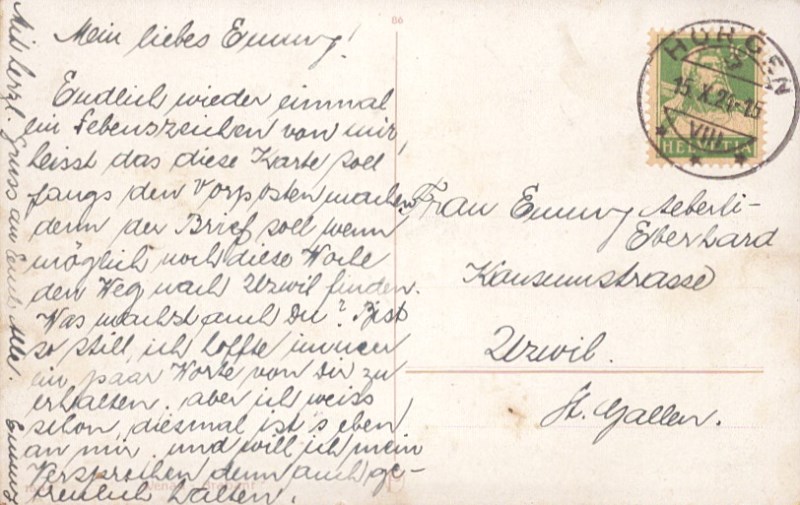 Mein liebes Emmy!
Endlich wieder einmal
ein Lebenszeichen von mir!
heisst das diese Karte soll
fangs den Vorposten machen
denn der Brief soll wenn
möglich noch diese Woche
den Weg nach Uzwil finden.
Was machst auch Du? Bist
so still, ich hoffte immer
ein paar Worte von Dir zu
erhalten. aber ich weiss
schon, diesmal ist's eben
an mir und will ich mein
Versprechen denn auch ge-
treulich halten.
Mit herzl. Gruss an Euch Alle.
Emmy
06
HORGEN
15.X.21-15
VIII
HELVETIA
Frau Emmy Aeberli-
Eberhard
Konsumstrasse
Uzwil.
St. Gallen.